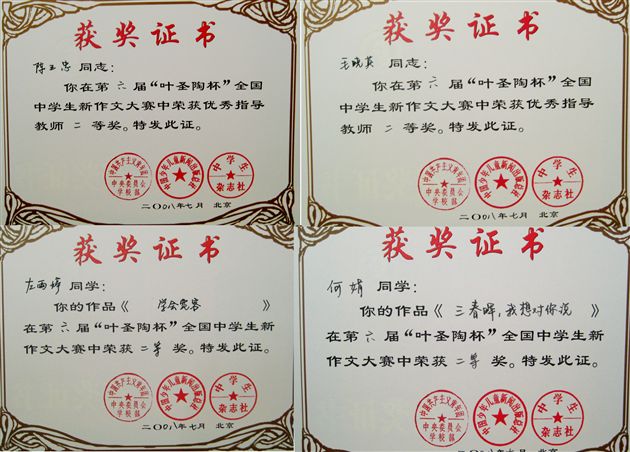 获奖证书
陈玉忠 同志：
你在第六届“叶圣陶杯”全国
中学生新作文大赛中荣获优秀指导
教师二等奖。特发此证。
中国共产主义青年团
中央委员会
学校部
中国少年儿童新闻出版总社
中学生
杂志社
二〇〇八年七月 北京
获奖证书
毛晓英 同志：
你在第六届“叶圣陶杯”全国
中学生新作文大赛中荣获优秀指导
教师二等奖。特发此证。
中国共产主义青年团
中央委员会
学校部
中国少年儿童新闻出版总社
中学生
杂志社
二〇〇八年七月 北京
获奖证书
左雨婷 同学：
你的作品《 学会宽容 》
在第六届“叶圣陶杯”全国中学生新
作文大赛中荣获二等奖。特发此证。
中国共产主义青年团
中央委员会
学校部
中国少年儿童新闻出版总社
中学生
杂志社
二〇〇八年七月 北京
获奖证书
何娟 同学：
你的作品《三春晖，我想对你说》
在第六届“叶圣陶杯”全国中学生新
作文大赛中荣获二等奖。特发此证。
中国共产主义青年团
中央委员会
学校部
中国少年儿童新闻出版总社
中学生
杂志社
二〇〇八年七月 北京